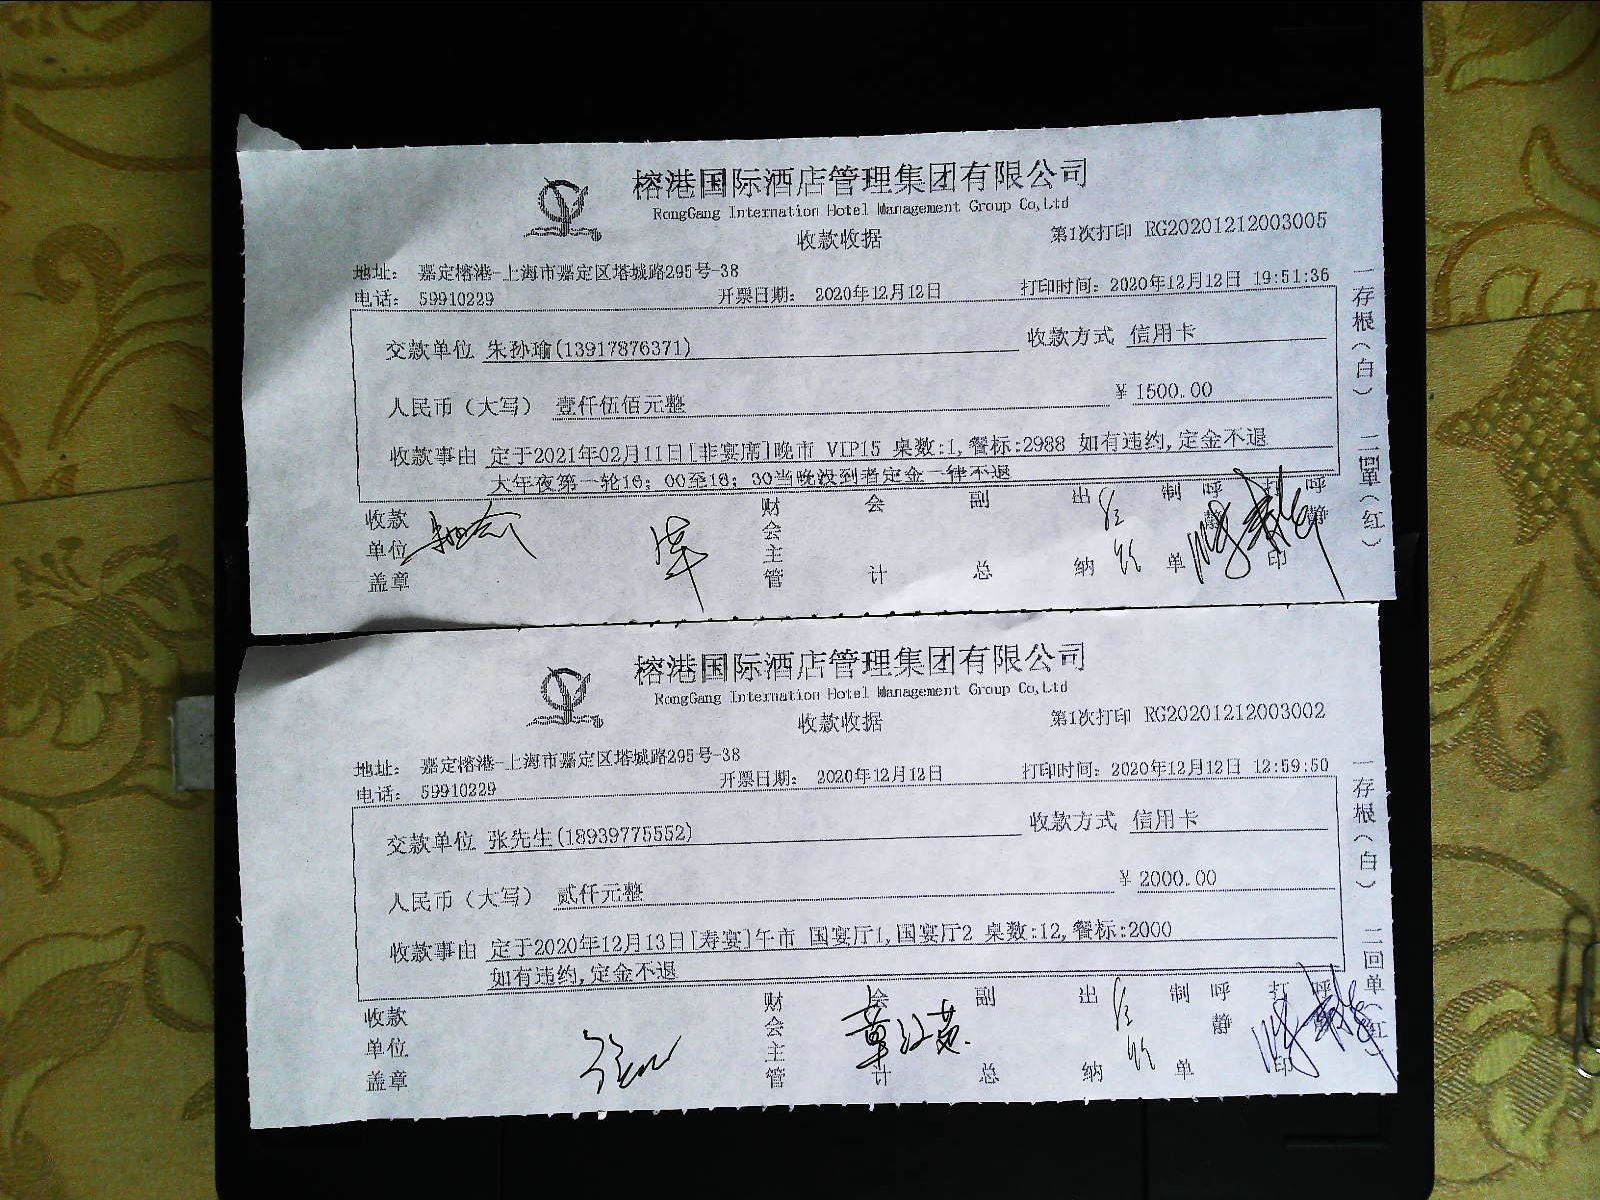 榕港国际酒店管理集团有限公司
RongGang Internation Hotel Management Group Co,Ltd
收款收据
第1次打印 RG20201212003005
地址： 嘉定榕港-上海市嘉定区塔城路295号-38
电话： 59910229 开票日期： 2020年12月12日 打印时间：2020年12月12日 19:51:36
交款单位 朱孙瑜(13917876371) 收款方式 信用卡
人民币（大写） 壹仟伍佰元整 ¥ 1500.00
收款事由 定于2021年02月11日[非宴席]晚市 VIP15 桌数:1,餐标:2988 如有违约,定金不退
大年夜第一轮16：00至18：30当晚没到者定金一律不退
收款单位盖章 财会主管 会计 副总 出纳 制单 呼静 打印 呼静
一存根（白） 二回单（红）
榕港国际酒店管理集团有限公司
RongGang Internation Hotel Management Group Co,Ltd
收款收据
第1次打印 RG20201212003002
地址： 嘉定榕港-上海市嘉定区塔城路295号-38
电话： 59910229 开票日期： 2020年12月12日 打印时间：2020年12月12日 12:59:50
交款单位 张先生(18939775552) 收款方式 信用卡
人民币（大写） 贰仟元整 ¥ 2000.00
收款事由 定于2020年12月13日[寿宴]午市 国宴厅1,国宴厅2 桌数:12,餐标:2000
如有违约,定金不退
收款单位盖章 财会主管 会计 章红英 副总 出纳 制单 呼静 打印 呼
一存根（白） 二回单（红）